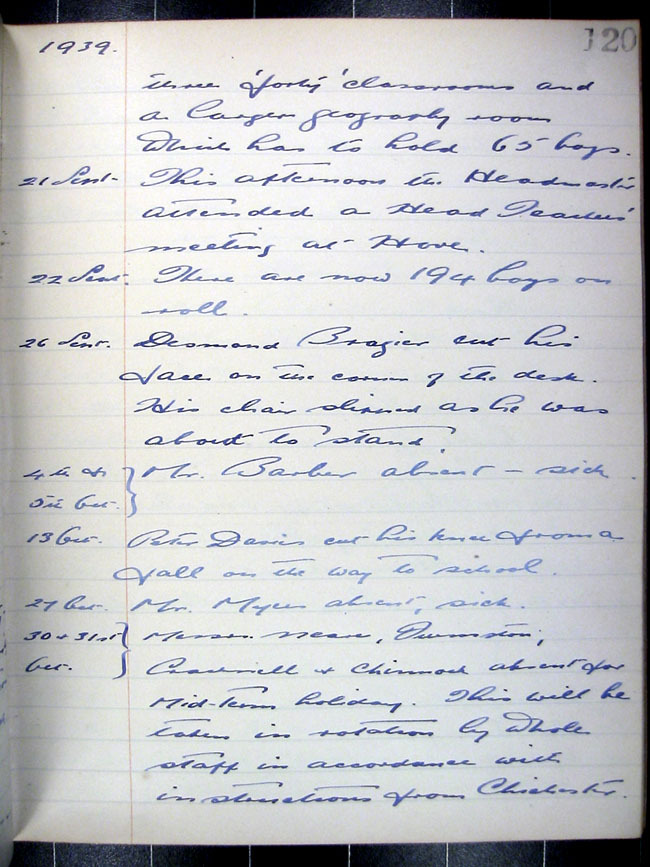 1939.
120
three 'forty' classrooms and
a larger geography room
which has to hold 65 boys.
21 Sept. This afternoon the Headmaster
attended a Head Teachers'
meeting at Hove.
22 Sept. There are now 194 boys on
roll.
26 Sept. Desmond Brazier cut his
face on the corner of the desk.
His chair slipped as he was
about to stand.
4th & Mr. Barber absent - sick.
5th Oct.
13 Oct. Peter Davies cut his knee from a
fall on the way to school.
27 Oct. Mr. Myers absent, sick.
30 & 31st Messrs.
Oct. & Chinnock absent for
Mid-Term holiday. This will be
taken in rotation by whole
staff in accordance with
instructions from Chichester.